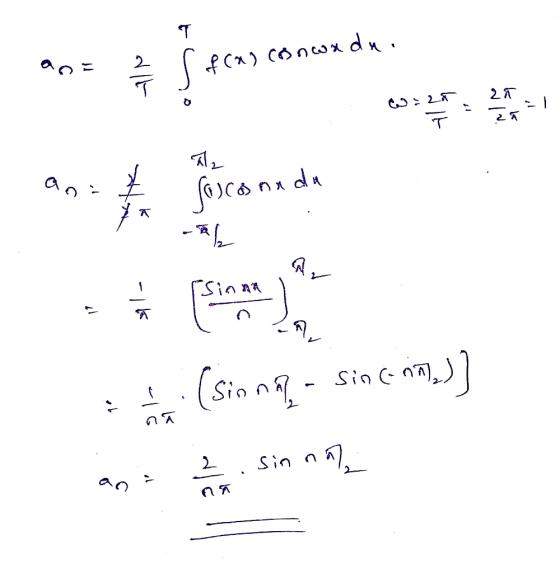 aₙ = 2/T ∫₀ᵀ f(x) cos nωx dx.
ω = 2π/T = 2π/2π = 1
aₙ = 2/2π ∫_{-π/2}^{π/2} (1) cos nx dx
= 1/π [sin nx/n]_{-π/2}^{π/2}
= 1/nπ . (sin nπ/2 - sin(-nπ/2)]
aₙ = 2/nπ . sin nπ/2